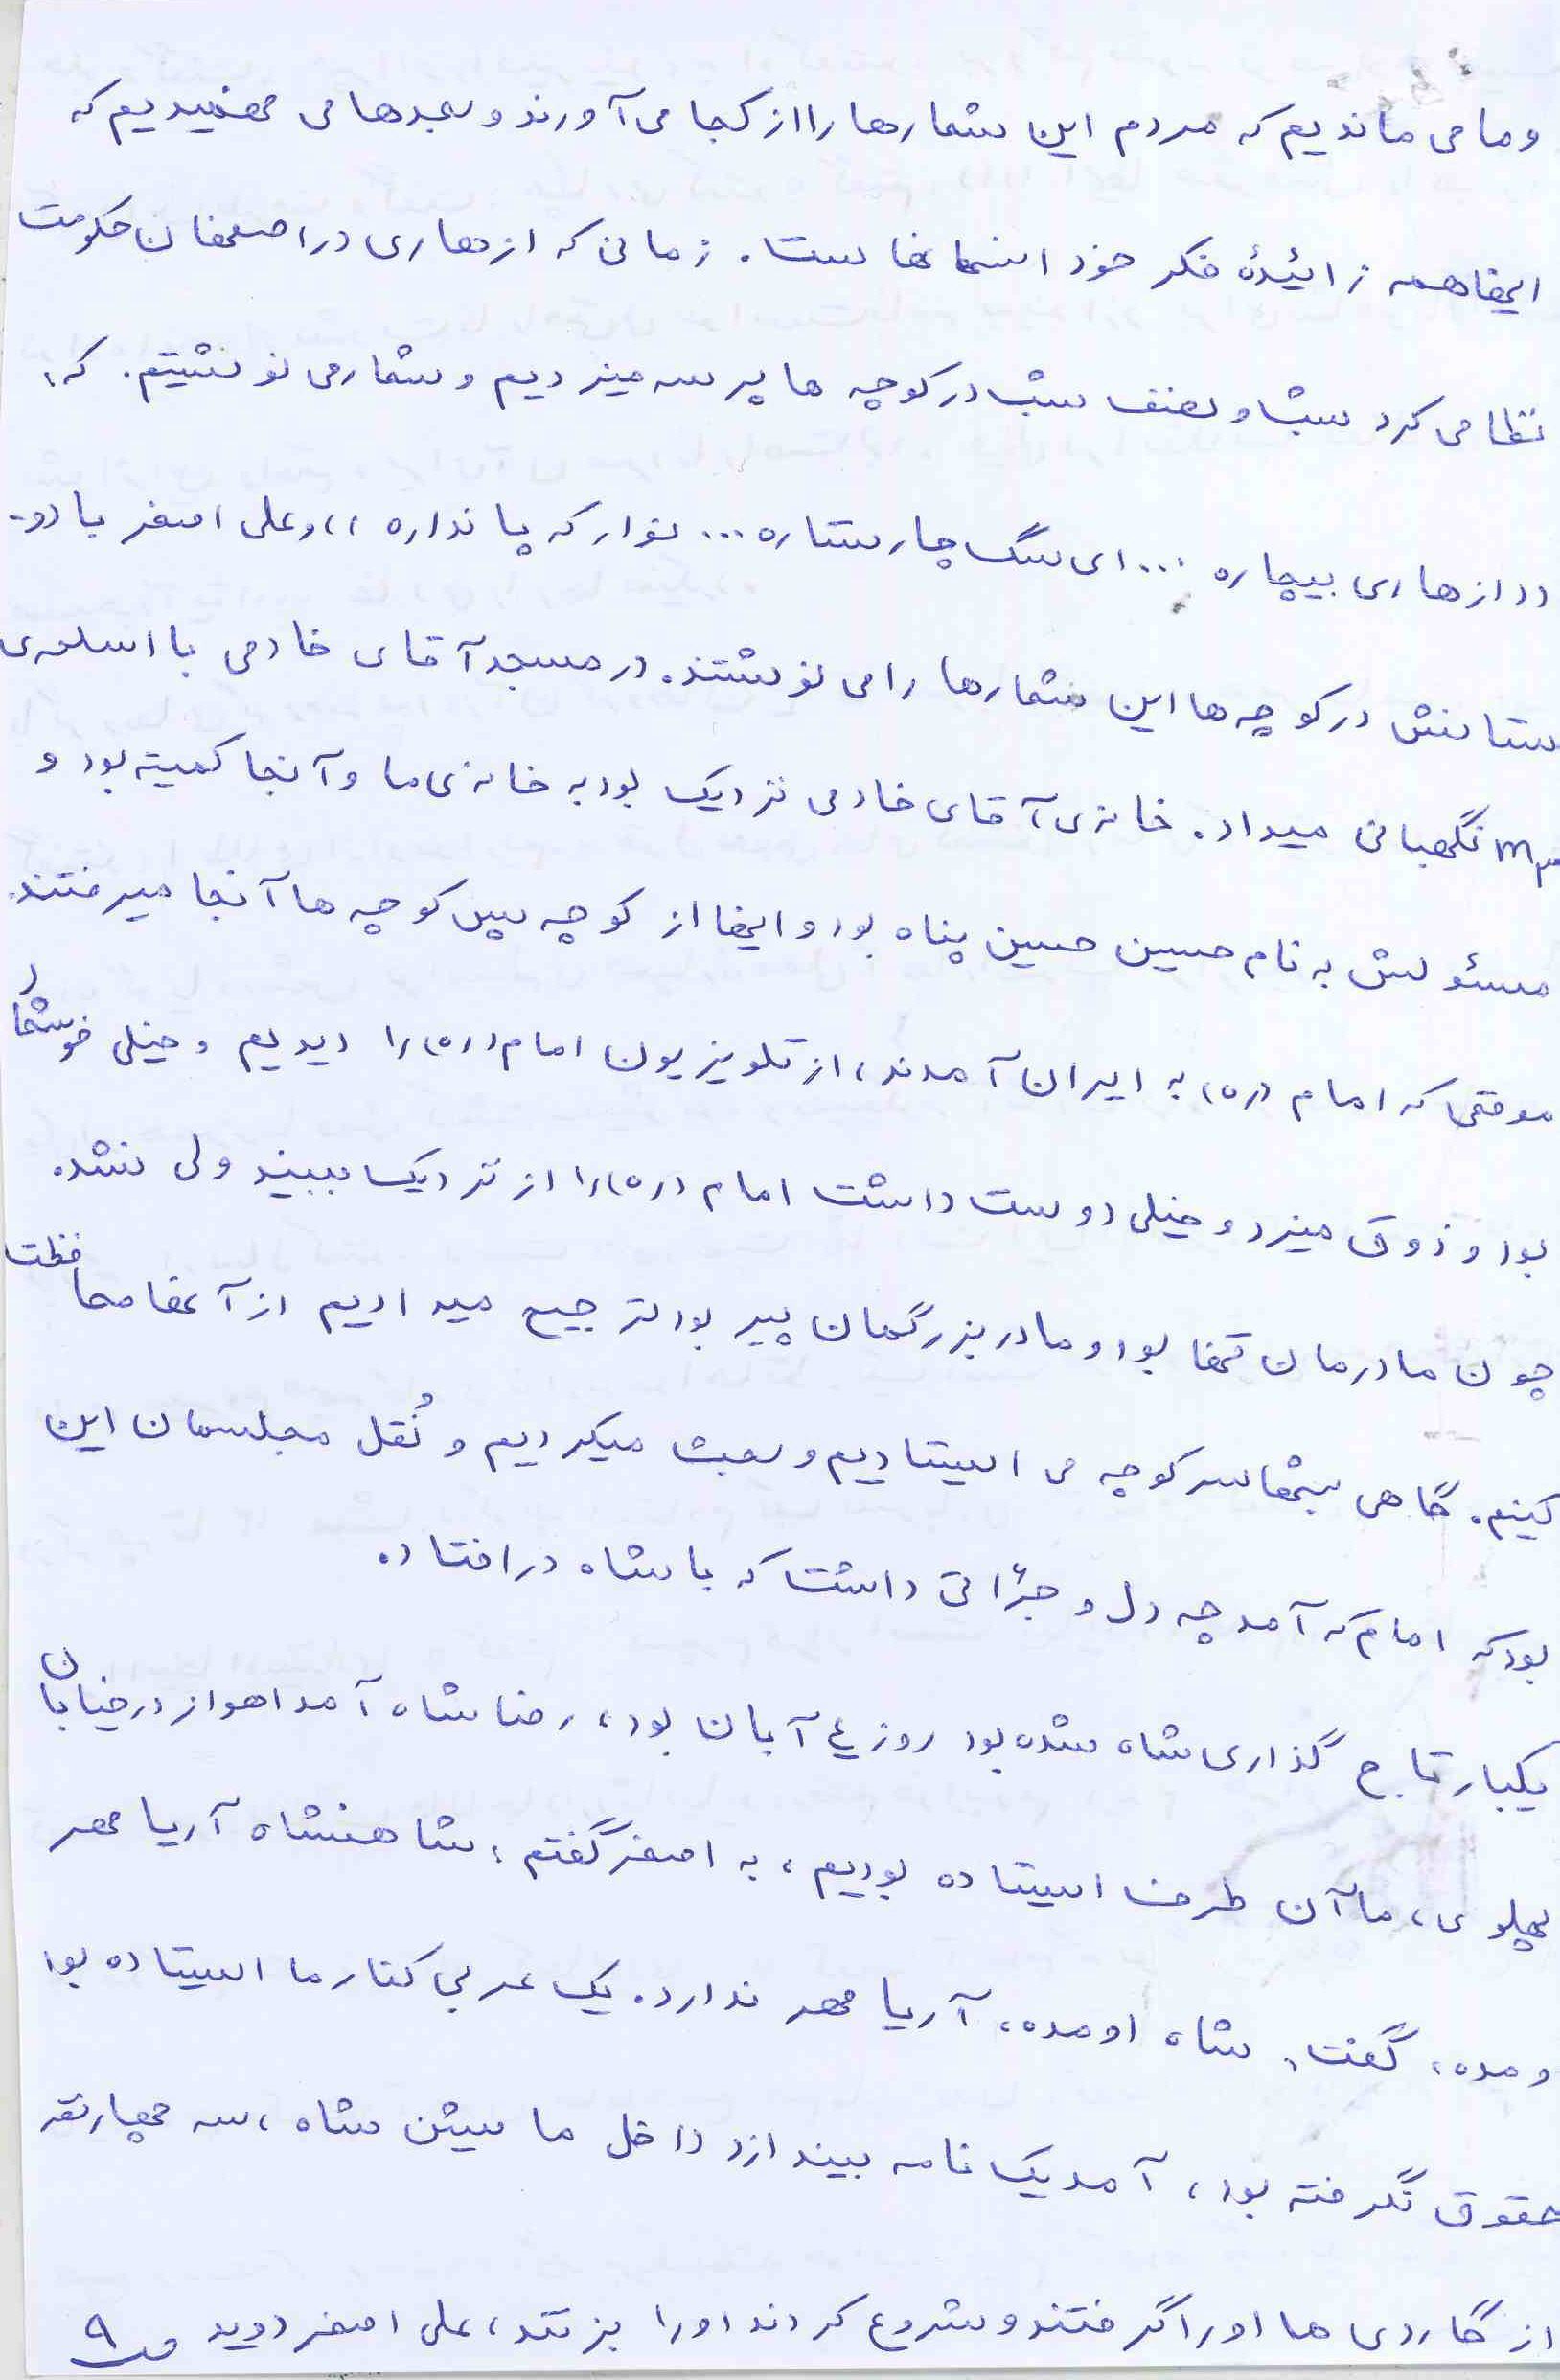 و ما می ماندیم که مردم این شعارها را از کجا می آورند و بعدها می فهمیدیم که
اینها همه زائیدهٔ فکر خود انسانهاست. زمانی که ازهاری در اصفهان حکومت
نظامی کرد شب و نصف شب در کوچه ها پرسه میزدیم و شعار می نوشتیم. که:
((ازهاری بیچاره ... ای سگ چار ستاره ... نوار که پا نداره)) و علی اصغر با دو-
ستانش در کوچه ها این شعارها را می نوشتند. در مسجد آقای خادمی با اسلحه ی
م۳ نگهبانی میداد. خانه ی آقای خادمی نزدیک بود به خانه ی ما و آنجا کمیته بود و
مسئولش به نام حسین حسین پناه بود و اینها از کوچه پس کوچه ها آنجا میرفتند.
موقعی که امام (ره) به ایران آمدند، از تلویزیون امام (ره) را دیدیم و خیلی خوشحال
بود و ذوق میزد و خیلی دوست داشت امام (ره) را از نزدیک ببیند ولی نشد.
چون مادرمان تنها بود و مادر بزرگمان پیر بود ترجیح میدادیم از آنها محافظت
کنیم. گاهی شبها سر کوچه می ایستادیم و بحث میکردیم و نُقل مجلسمان این
بود که امام که آمد چه دل و جرأتی داشت که با شاه در افتاد.
یکبار تاج گذاری شاه شده بود روز ۴ آبان بود، رضا شاه آمد اهواز در خیابان
پهلوی، ما آن طرف ایستاده بودیم، به اصغر گفتم: شاهنشاه آریا مهر
ومده، گفت: شاه اومده، آریا مهر ندارد. یک عربی کنار ما ایستاده بود
حقوق نگرفته بود، آمد یک نامه بیندازد داخل ماشین شاه، سه چهار نفر
از گاردی ها او را گرفتند و شروع کردند او را بزنند، علی اصغر دوید ص۹